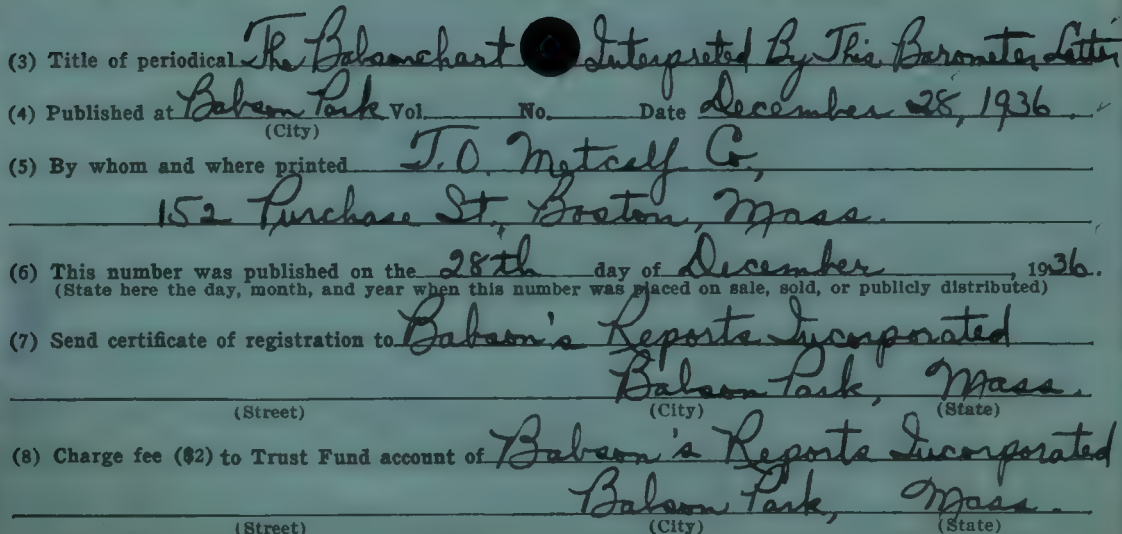 (3) Title of periodical The Babsonchart Interpreted By This Barometer Letter
(4) Published at Babson Park Vol. No. Date December 28, 1936.
(City)
(5) By whom and where printed T.O. Metcalf Co.,
152 Purchase St., Boston, Mass.
(6) This number was published on the 28th day of December, 1936.
(State here the day, month, and year when this number was placed on sale, sold, or publicly distributed)
(7) Send certificate of registration to Babson's Reports Incorporated
Babson Park, Mass.
(Street) (City) (State)
(8) Charge fee ($2) to Trust Fund account of Babson's Reports Incorporated
Babson Park, Mass.
(Street) (City) (State)